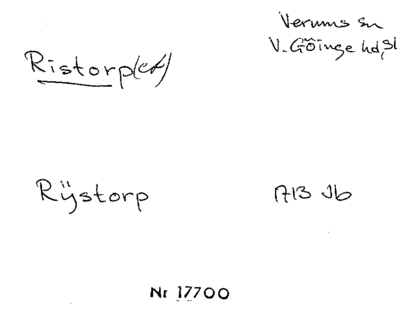 Verums sn
V. Göinge hd, Sl
Ristorp(et)
Rÿstorp
1713 Jb
Nr 17700